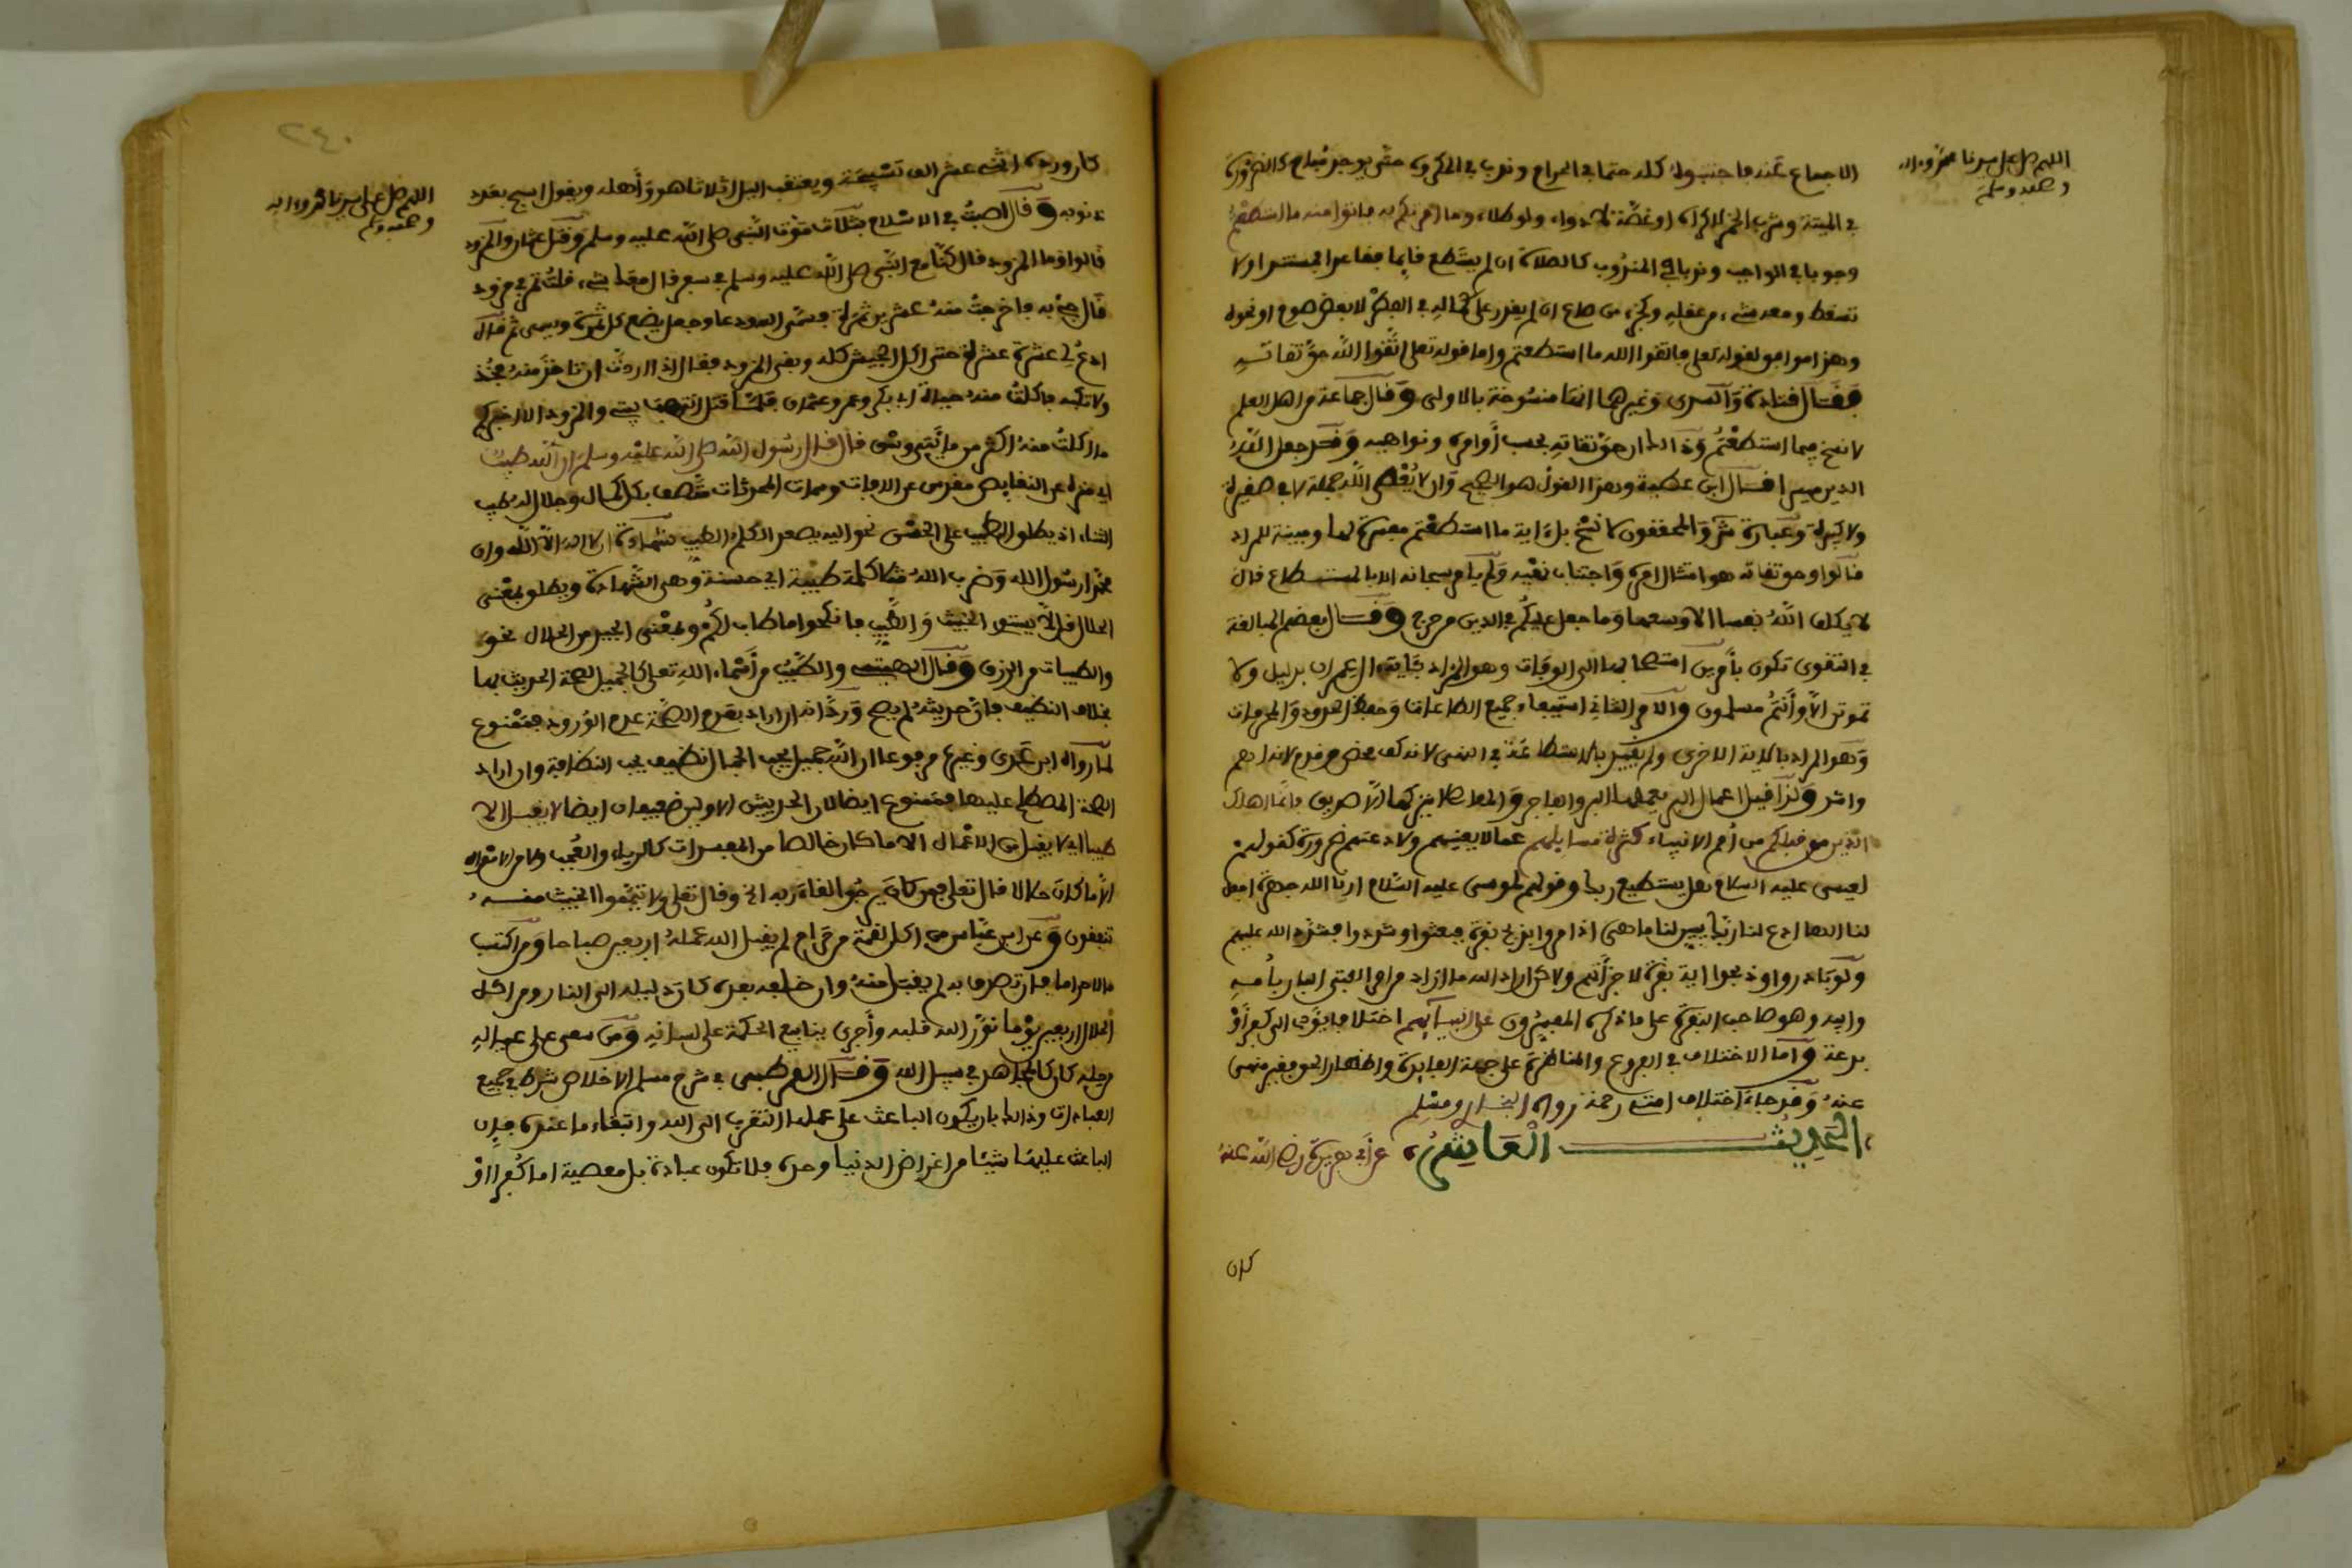 اللهم صل على سيدنا محمد وءاله
وصحبه وسلم
الاجماع عنه فاجتنبوه كله حتما في الحرام وندبا في المكروه حتى يوجد مبيح كالضرورة
في الميتة وشرب الخمر لاكراه او غصة لا دواء ولو طلاء وما امرتكم به فاتوا منه ما استطعتم
وجوبا في الواجب وندبا في المندوب كالصلاة ان لم يستطع قايما فقاعدا
تسقط
وهذا موافق لقوله تعلى فاتقوا الله ما استطعتم واما قوله تعلى اتقوا الله حق تقاته
فقال قتادة والسدي وغيرهما انها منسوخة بالاولى وقال جماعة من اهل العلم
لا نسخ
ولا كبيرة وعبارة والمحققون لا نسخ بل ءاية ما استطعتم مفسرة لها ومبينة للمراد
قالوا وحق تقاته هو امتثال امره واجتناب نهيه ولم يامر سبحانه الا بالمستطاع قال
لا يكلف الله نفسا الا وسعها وما جعل عليكم في الدين من حرج وقال بعضهم المبالغة
في التقوى تكون بأمرين استصحابها الى الوفات وهو المراد بئاية ال عمران بدليل ولا
تموتن الا وأنتم مسلمون والامر الثاني استيعاب جميع الطاعات وحفظ الحدود والحرمات
وهو المراد بالاية الاخرى ولم يقيد بالاستطاعة في النهي لانه كف محض
واشد ولذا قيل اعمال البر يعملها البر والفاجر والمعاصي لا يتركها الا صديق فانما اهلك
الذين من قبلكم من أمم الانبياء كثرة مسايلهم عما لا يعنيهم ولا دعتهم ضرورة كقولهم
لعيسى عليه السلام هل يستطيع ربك وقولهم لموسى عليه السلام ارنا الله جهرة اجعل
لنا الها ادع لنا ربك يبين لنا ما هي اذ امروا بذبح بقرة فبحثوا وشددوا فشدد الله عليهم
ولو بادروا وذبحوا اية بقرة لاجزأتهم ولاكن اراد الله
وابيه وهو صاحب البقرة على ما ذكره المفسرون على انبيائهم اختلافا يؤدي الى كفر أو
بدعة وأما الاختلاف في الفروع والمناظرة على جهة الفايدة واظهار الحق فغير منهي
عنه وقد جاء اختلاف امتي رحمة رواه البخاري ومسلم
الحديث العاشر عن أبي هريرة رضي الله عنه
كان
٢٤٠
اللهم صل على سيدنا محمد وءاله
وصحبه وسلم
كان ورده اثنى عشر الف تسبيحة ويعتقب اليل اثلاثا هو وأهله ويقول اسبح بعدد
ذنوبه وقال اصبت في الاسلام بثلاث موت النبي صلى الله عليه وسلم وقتل عثمان والمزود
قالوا وما المزود قال كنا مع النبي صلى الله عليه وسلم في سفر فقال معك شيء قلت تمر في مزود
قال جئ به فاخرجت منه عشرين تمرة فسمى الله ودعا وجعل يضع كل تمرة ويسمى ثم قال
ادع لي عشرة عشرة حتى اكل الجيش كله وبقى المزود فقال اذا اردت ان تاخذ منه فخذ
ولا تكبه فاكلت منه حياة ابي بكر وعمر وعثمان فلما قتل انتهب بيتي والمزود الا اخبركم
ما اكلت منه اكثر من مايتي وسق قال قال رسول الله صلى الله عليه وسلم ان الله طيب
اي منزه عن النقايص مقدس عن الافات وسمات المحدثات متصف بكل كمال وجلال له طيب
الثناء اذ يطلق الطيب على الحسن نحو اليه يصعد الكلم الطيب شهادة ان لا اله الا الله وان
محمدا رسول الله وضرب الله مثلا كلمة طيبة اي حسنة وهي الشهادة ويطلق بمعنى
الحلال قل لا يستوي الخبيث والطيب فانكحوا ما طاب لكم وبمعنى الجيد من الحلال نحو
والطيبات من الرزق وقال الهيتمي والطيب من أسماء الله تعلى كالجميل لصحة الحديث بها
بخلاف النظيف فان حديثه لم يصح ورد انه ان اراد بعدم الصحة عدم الورود فممنوع
لما رواه ابن عدي وغيره مرفوعا ان الله جميل يحب الجمال نظيف يحب النظافة وان اراد
الصحة المصطلح عليها فممنوع ايضا لان الحديثين الاولين ضعيفان ايضا لا يقبل الا
طيبا اي لا يقبل من الاعمال الا ما كان خالصا من المفسدات كالرياء والعجب ولا من الاموال
الا ما كان حلالا قال تعلى فمن كان يرجوا لقاء ربه الخ وقال تعلى ولا تيمموا الخبيث منه
تنفقون وعن ابن عباس من اكل لقمة من حرام لم يقبل الله عمله اربعين صباحا ومن اكتسب
مالا حراما فان تصدق به لم يقبل منه وان خلفه بعده كان دليله الى النار ومن اكل
الحلال اربعين يوما نور الله قلبه وأجرى ينابيع الحكمة على لسانه ومن سعى على عياله
من حله كان كالمجاهد في سبيل الله وقال القرطبي في شرح مسلم الاخلاص شرط في جميع
العبادات وذالك بان يكون الباعث على عملها التقرب الى الله وابتغاء ما عنده فان
الباعث عليها شيئا من اغراض الدنيا وحده فلا تكون عبادة بل معصية اما كفرا او